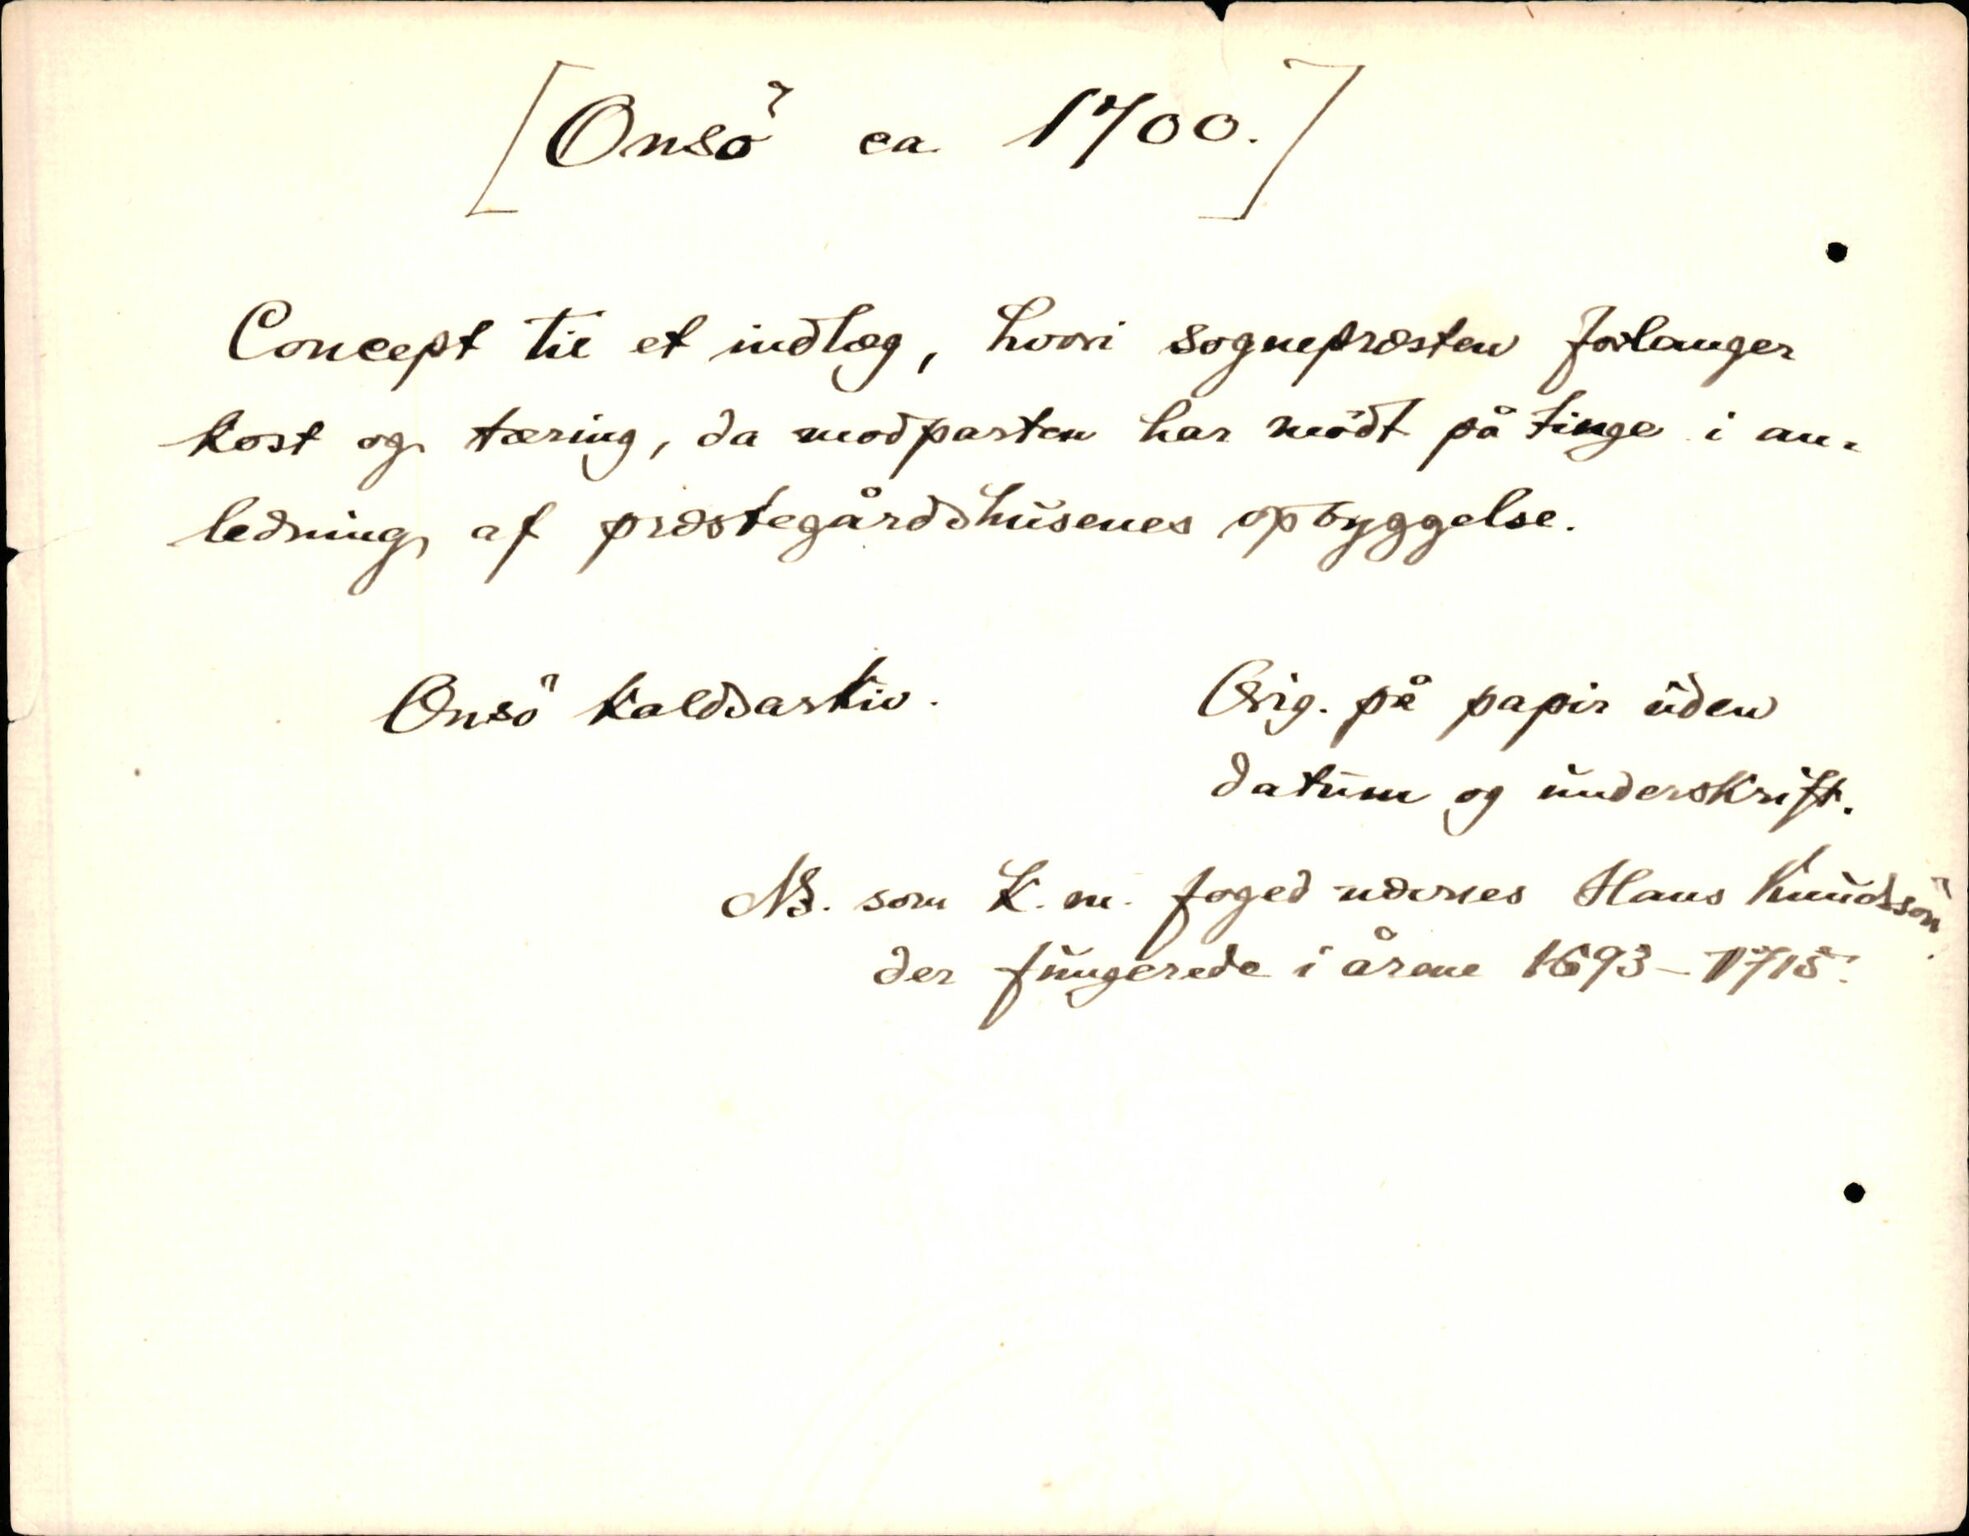 [Onsö ca 1700.]
Concept til et indlæg, hvori sognepræsten forlanger
kost og tæring, da modparten har mödt på tinge i an-
ledning af præstegårdshusenes opbyggelse.
Onsö kaldsarkiv. Orig. på papir uden
datum og underskrift.
NB. som K. m. foged nævnes Hans Knudssön
der fungerede i årene 1693-1715.